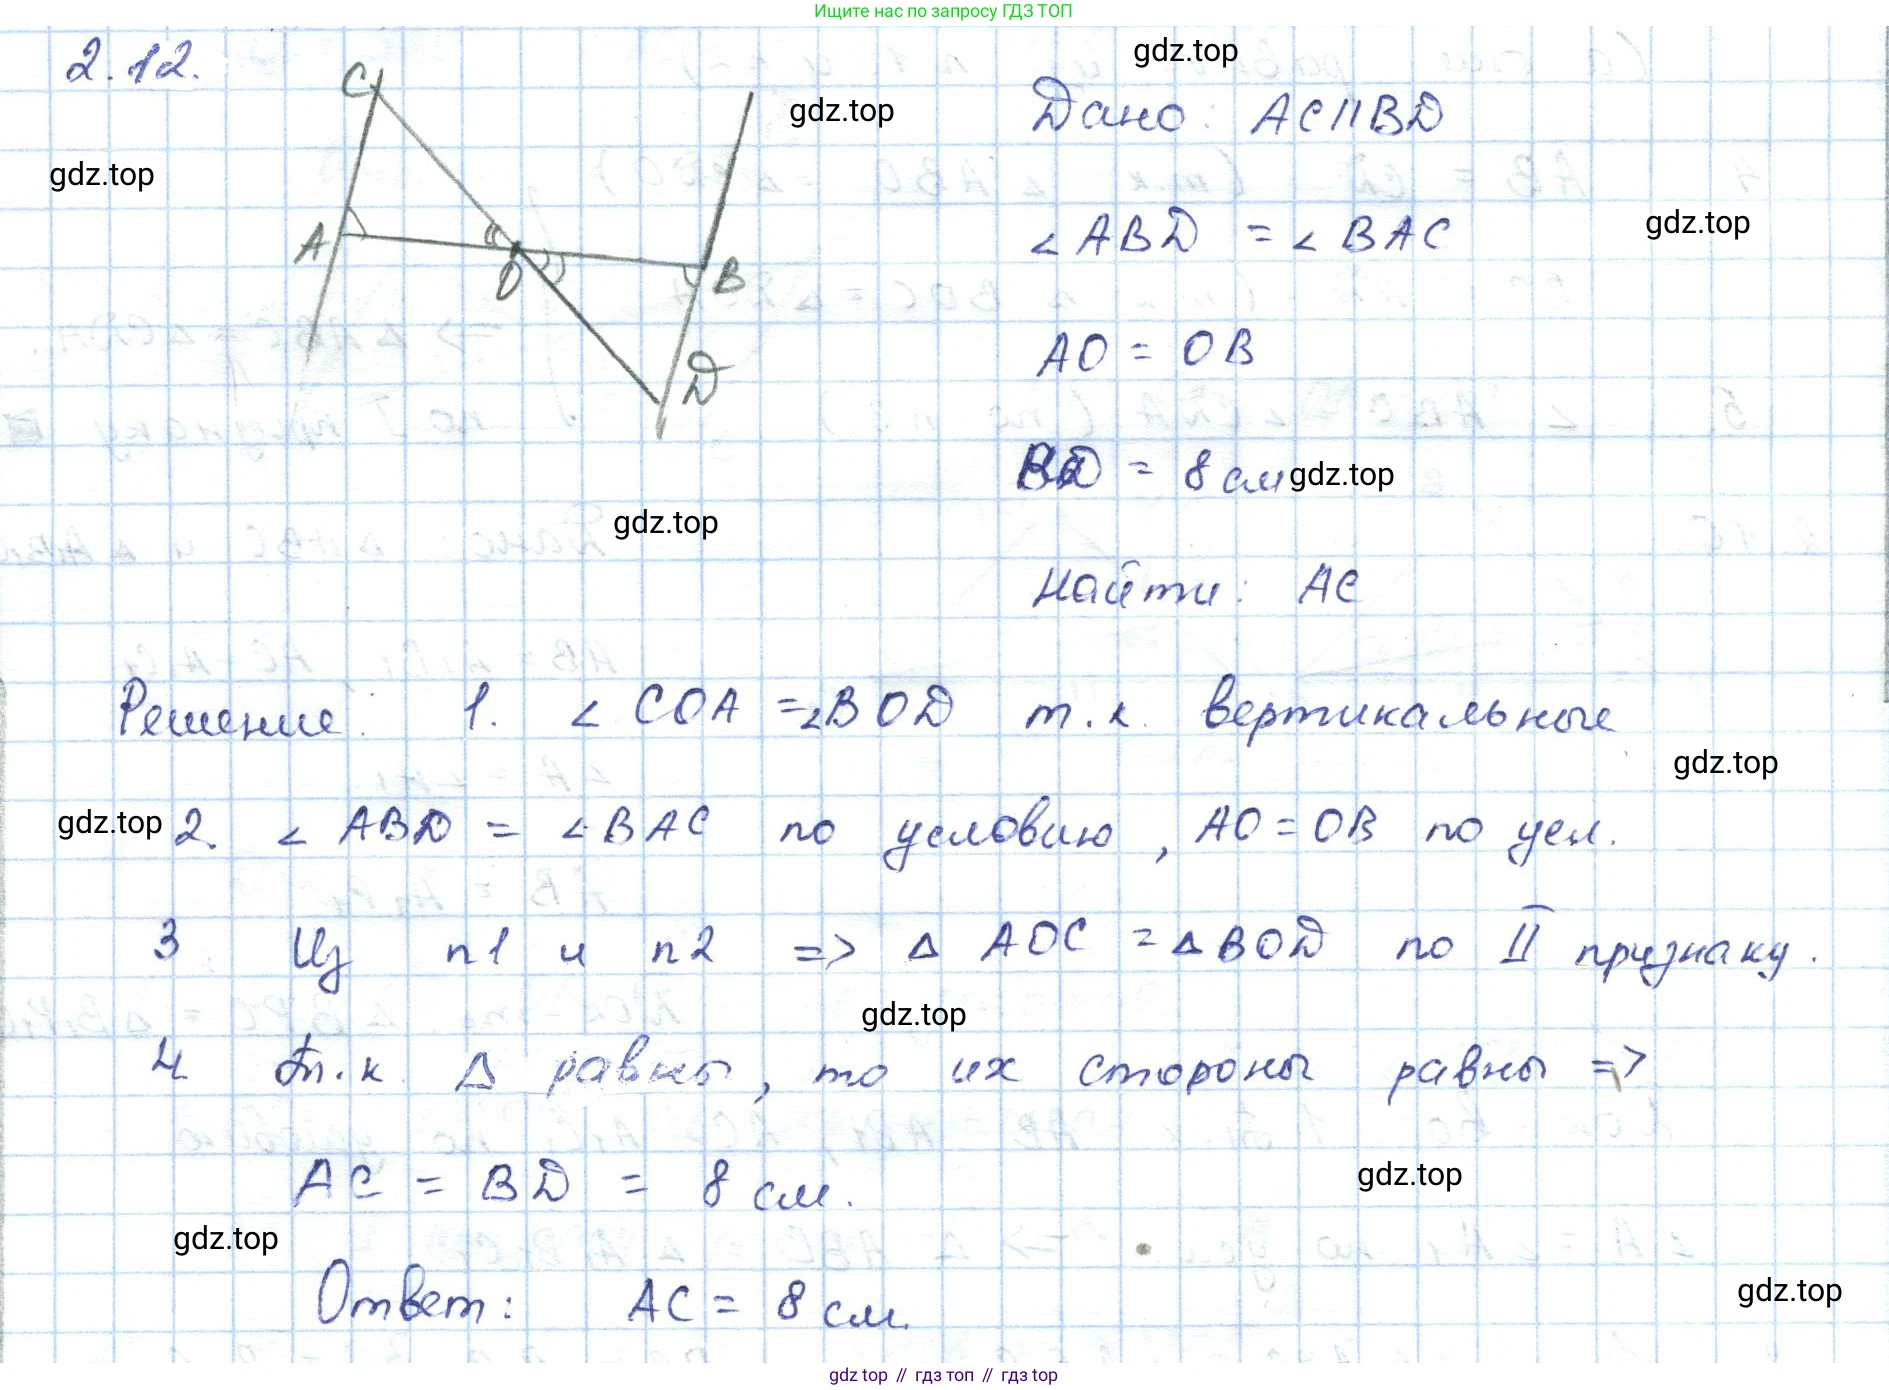 Ищите нас по запросу ГДЗ ТОП
2.12.
gdz.top
C
gdz.top
Дано: AC||BD
gdz.top
∠ABD = ∠BAC
gdz.top
A
O
B
AO = OB
D
BD = 8 см
gdz.top
gdz.top
Найти: AC
Решение: 1. ∠COA = ∠BOD т.к. вертикальные
gdz.top
gdz.top
2. ∠ABD = ∠BAC по условию, AO = OB по усл.
3 Из п1 и п2 => △AOC = △BOD по II признаку.
gdz.top
4 Т.к △ равны, то их стороны равны =>
AC = BD = 8 см.
gdz.top
gdz.top
Ответ: AC = 8 см.
gdz.top
gdz top // гдз топ // гдз top